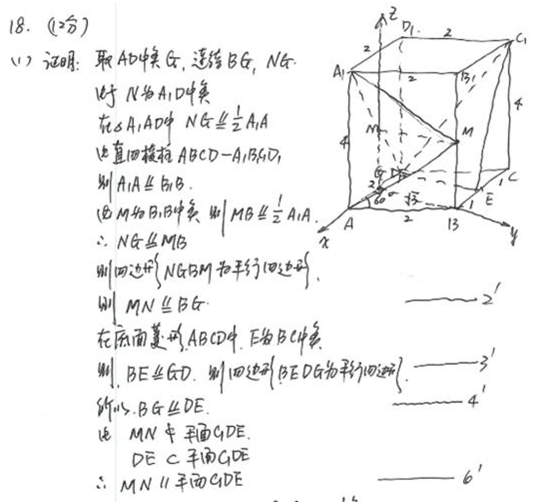 18. (12分)
(1) 证明: 取AD中点G, 连结BG, NG.
由于 N为A₁D中点
在△A₁AD中 NG⫽½A₁A
由直四棱柱ABCD-A₁B₁C₁D₁
则A₁A⫽B₁B.
由M为B₁B中点 则MB⫽½A₁A.
∴ NG⫽MB
则四边形NGBM为平行四边形.
则 MN⫽BG. 2'
在底面菱形ABCD中, E为BC中点
则 BE⫽GD. 则四边形BEDG为平行四边形. 3'
所以. BG⫽DE. 4'
由 MN⊄平面C₁DE.
DE⊂平面C₁DE
∴ MN∥平面C₁DE 6'
Z
D₁
2
2
C₁
A₁
2
B₁
4
4
N
M
G
D
C
2
60°
√3
1
E
1
A
2
B
x
y